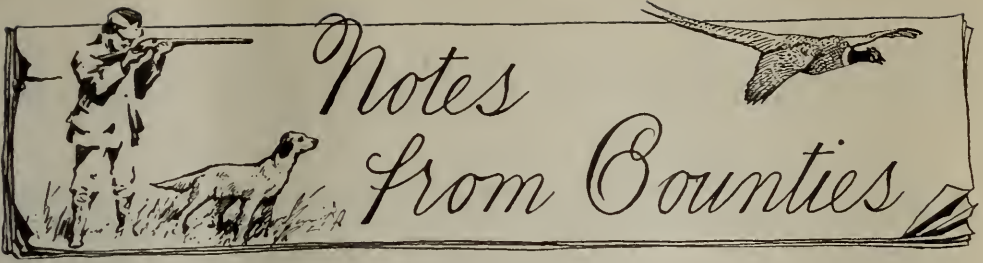 Notes
from Counties